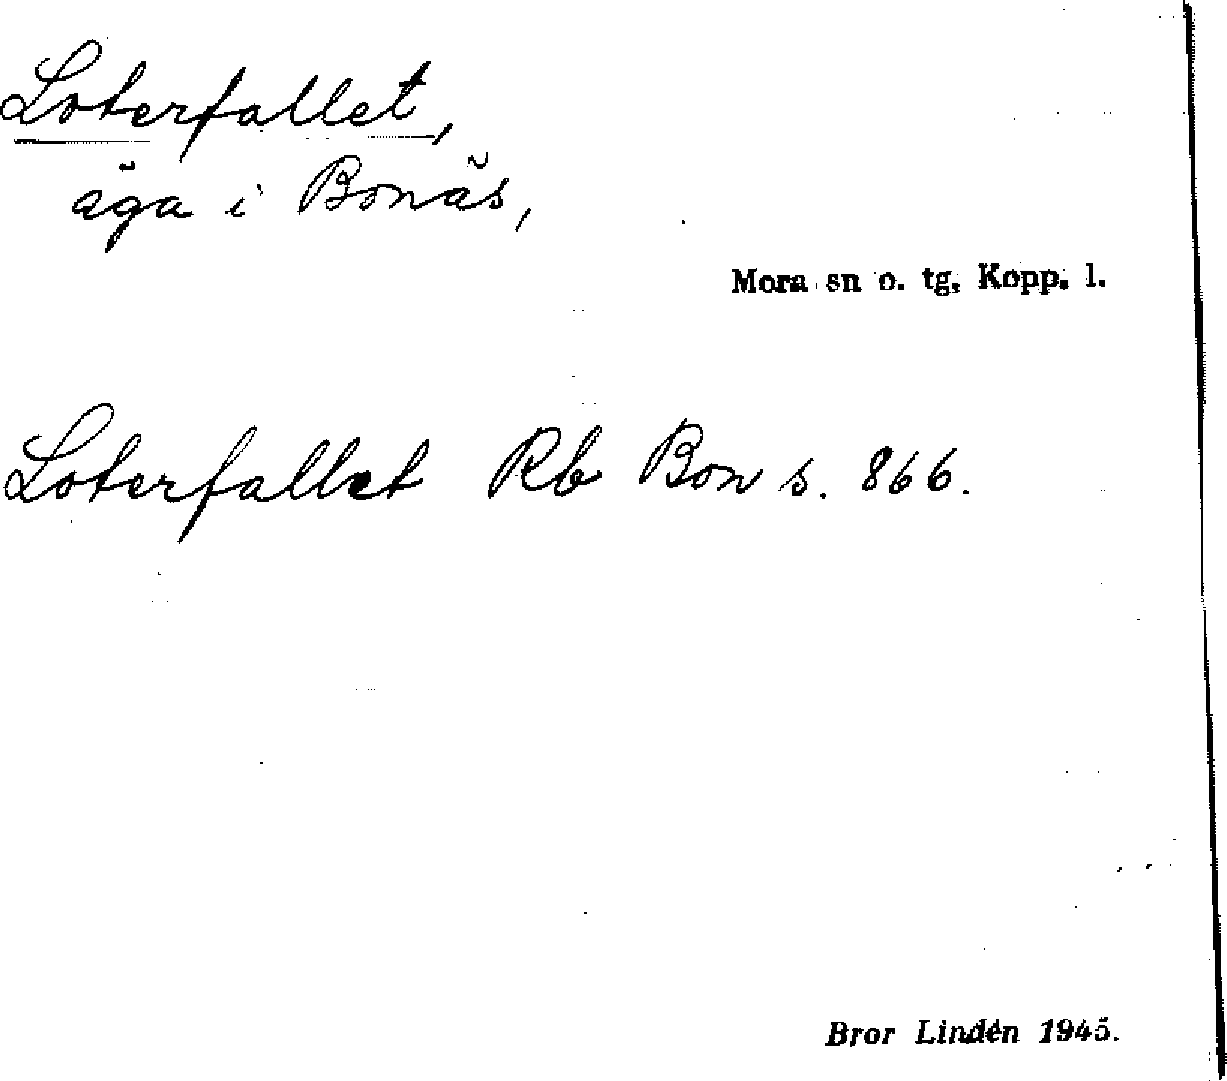 Loterfallet,
äga i Bonäs,
Mora sn o. tg. Kopp. l.
Loterfallet Rb Bon s. 866.
Bror Lindén 1945.